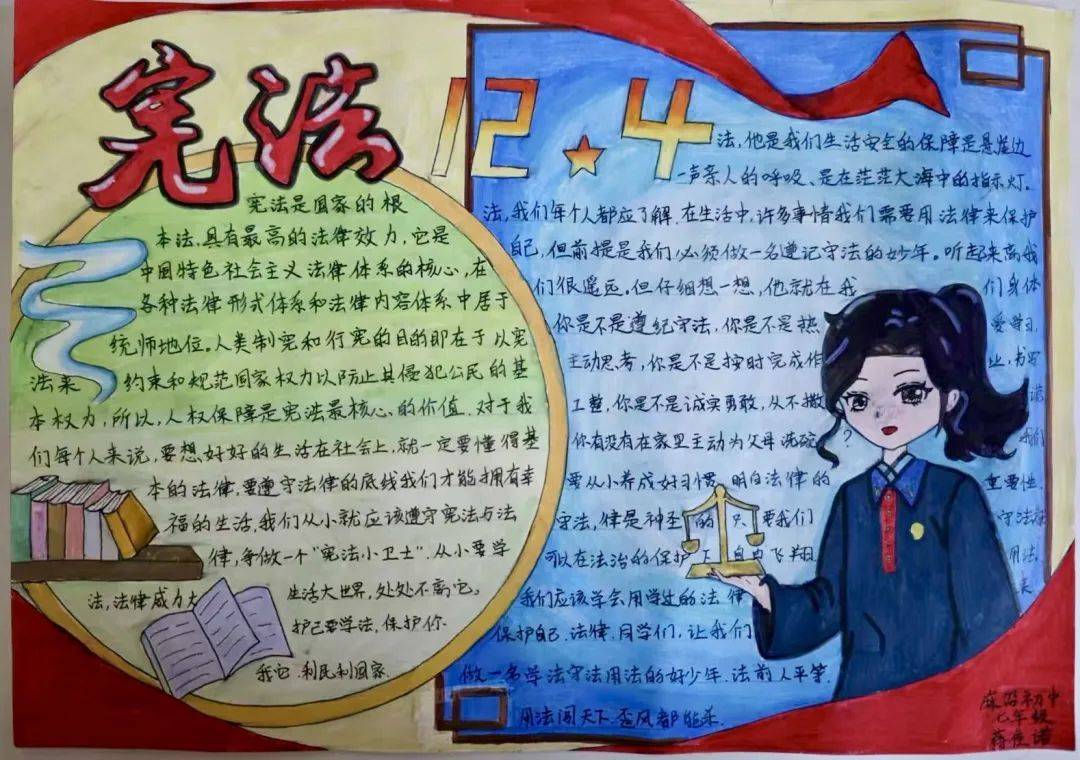 宪法
12.4
宪法是国家的根
本法,具有最高的法律效力,它是
中国特色社会主义法律体系的核心,在
各种法律形式体系和法律内容体系中居于
统师地位。人类制宪和行宪的目的即在于以宪
法来 约束和规范国家权力以防止其侵犯公民的基
本权力,所以,人权保障是宪法最核心的价值.对于我
们每个人来说,要想好好的生活在社会上,就一定要懂得基
本的法律,要遵守法律的底线我们才能拥有幸
福的生活,我们从小就应该遵守宪法与法
律,争做一个“宪法小卫士”.从小要学
法,法律威力大 生活大世界,处处不离它。
护己要学法,保护你.
我它.利民利国家.
法,他是我们生活安全的保障是悬崖边
一声亲人的呼吸、是在茫茫大海中的指示灯.
法,我们每个人都应了解.在生活中,许多事情我们需要用法律来保护
自己,但前提是我们必须做一名遵记守法的妙年。听起来离我
们很遥远.但仔细想一想,他就在我 们身体
你是不是遵纪守法,你是不是热 爱学习,
主动思考,你是不是按时完成作 业,书写
工整,你是不是诚实勇敢,从不撒 谎
你有没有在家里主动为父母洗碗 ? 我们
要从小养成好习惯,明白法律的 重要性.
守法,律是神圣的 要我们 守法
可以在法治的保护下自由飞翔 用法,
我们应该学会用学过的法律
保护自己.法律.同学们,让我们
做一名学法守法用法的好少年.法前人平等.
用法闯天下.歪风都能杀.
初中
七年级
蒋佳